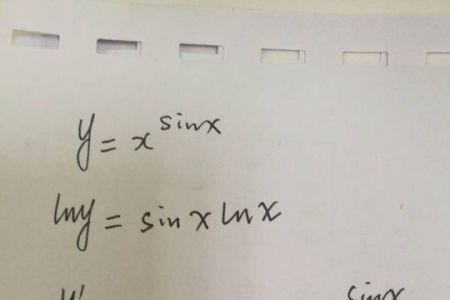 y = x^sinx
lny = sin x ln x
sinx